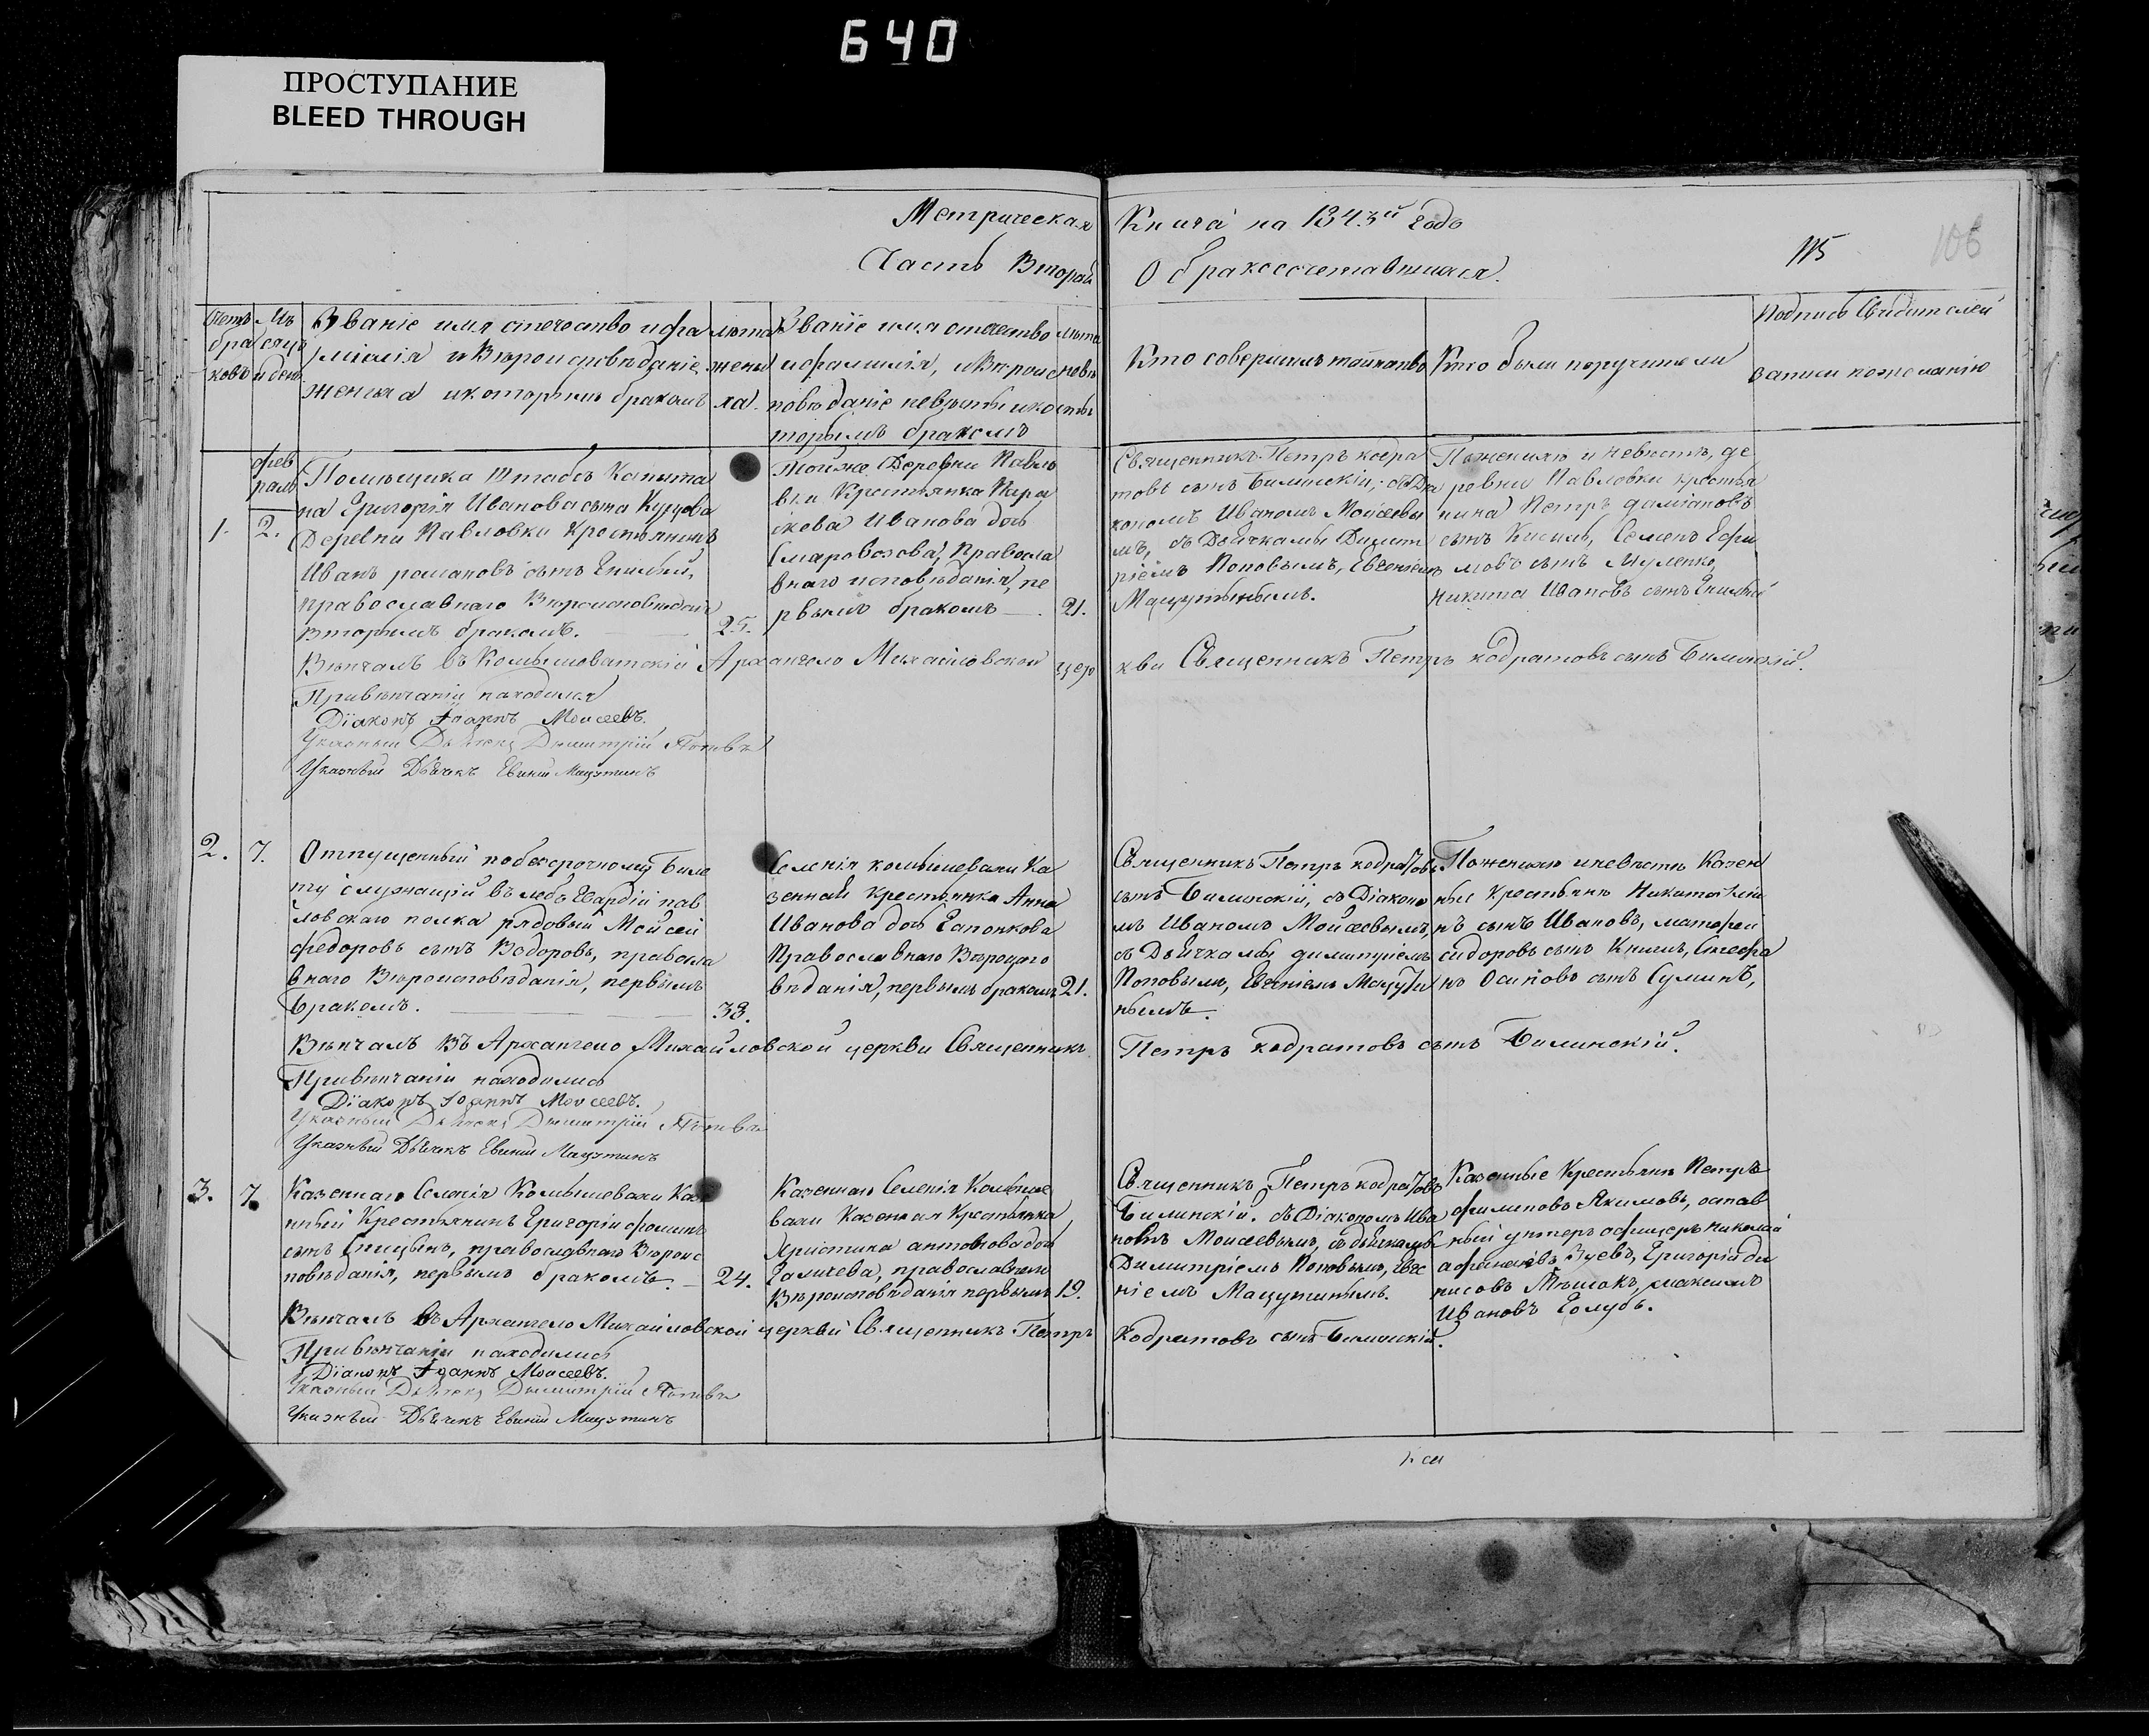 640
ПРОСТУПАНИЕ
BLEED THROUGH
Метрическая Книга на 1843й годъ
Часть Вторая О бракосочетавшихся.
115
106
Щетъ браковъ
Мѣсяцъ и день
Званіе имя отечество и фа
милія и Вѣроисповѣданіе
жениха и которымъ бракомъ
лѣта
жени
ха.
Званіе имя отечество
и фамилія, и Вѣроис
повѣданіе невѣсты и ко
торымъ бракомъ
лѣта
невѣ
сты
Кто совершилъ таинство
Кто были поручители
Подпись Свидителей
записи по желанію
1.
фев
раль
2.
Помѣщика Штабсъ Капита
на Григорія Иванова сына Куцова
Деревни Павловки Крестьянинъ
Иванъ романовъ сынъ Епишый,
православнаго Вѣроисповѣданія
вторымъ бракомъ.
25.
Тойже Деревни Павло
вки Крестьянка Пара
скева Иванова дочь
Смаровозова, Правосла
внаго исповѣданія, пе
рвымъ бракомъ
21.
Священникъ Петръ кодра
товъ сынъ Билинскій, съ Діа
кономъ Иваномъ Моисеевы
мъ, съ Дьячкамы Димит
ріемъ Поповымъ, Евгеніемъ
Мацутинымъ.
По жениху и невѣстѣ, де
ревни Павловки крестья
нина Петръ даміановъ
сынъ Кисиль, Семенъ Ефи
мовъ сынъ Муленко,
Никита Ивановъ сынъ Епишый
Вѣнчалъ въ Комышоватскій Архангело Михайловской церкви Священникъ Петръ кодратовъ сынъ Билинскій.
При вѣнчаніи находился
Діаконъ Іоаннъ Моисеевъ.
Указный Дьячекъ Дымитрій Поповъ
Указный Дьячекъ Евгеній Мацутинъ
2.
7.
Отпущенный побезсрочному Биле
ту служащій въ лебъ Гвардіи пав
ловскаго полка рядовый Мойсей
федоровъ сынъ Водоровъ, правосла
внаго Вѣроисповѣданія, первымъ
бракомъ.
38.
Селенія комышевахи Ка
зенная крестьянка Анна
Иванова дочь Гапонкова
Православнаго Вѣроиспо
вѣданія, первымъ бракомъ
21.
Священникъ Петръ кодратовъ
сынъ Билинскій, съ Діаконо
мъ Иваномъ Мойсеевымъ,
съ Дьячкамы димитріемъ
Поповымъ, Евгеніемъ Мацути
нымъ.
По жениху и невѣстѣ Казен
ные крестьяне Никита
нъ сынъ Ивановъ, матфеи
сидоровъ сынъ Книшъ, Стефа
нъ Осиповъ сынъ Суминъ,
Вѣнчалъ въ Архангело Михайловской церкви Священникъ Петръ кодратовъ сынъ Билинскій.
При вѣнчаніи находились
Діаконъ Іоаннъ Моисеевъ.
Указный Дьячекъ Дымитрій Поповъ
Указный Дьячекъ Евгеній Мацутинъ
3.
7.
Казеннаго Селенія Комышевахи Казе
нный Крестьянинъ Григорій фоминъ
сынъ Спицынъ, православнаго Вѣроис
повѣданія, первымъ бракомъ.
24.
Казеннаго Селенія Комыше
вахи Казенная Крестьянка
Христина антонова дочь
Галичева, православнаго
Вѣроисповѣданія первымъ
19.
Священникъ Петръ кодратовъ
Билинскій. съ Діакономъ Ива
номъ Моисеевымъ, съ дьячкамы
Димитріемъ Поповымъ, Евге
ніемъ Мацутинымъ.
Казенные Крестьяне Петръ
филиповъ Якимовъ, остав
ный унтеръ офицеръ николай
афанасіевъ Зуевъ, Григорій де
нисовъ Мѣшокъ, максимъ
Ивановъ Голубъ.
Вѣнчалъ въ Архангело Михайловской церкви Священникъ Петръ Кодратовъ сынъ Билинскій.
При вѣнчаніи находились
Діаконъ Іоаннъ Моисеевъ.
Указный Дьячекъ Дымитрій Поповъ
Указный Дьячекъ Евгеній Мацутинъ